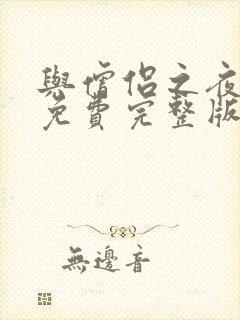 與僧侶之夜
免費完整版
無邊音